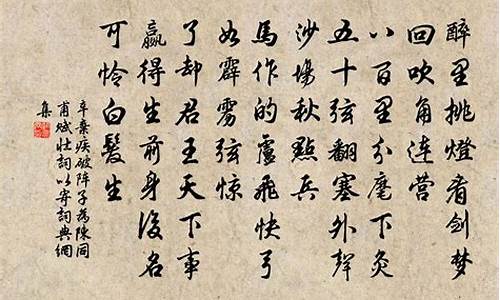 醉里挑灯看剑梦
回吹角连营
八百里分麾下炙
五十弦翻塞外声
沙场秋点兵
马作的卢飞快弓
如霹雳弦惊
了却君王天下事
赢得生前身后名
可怜白发生
辛弃疾破阵子为陈同
甫赋壮词以寄词典网
集